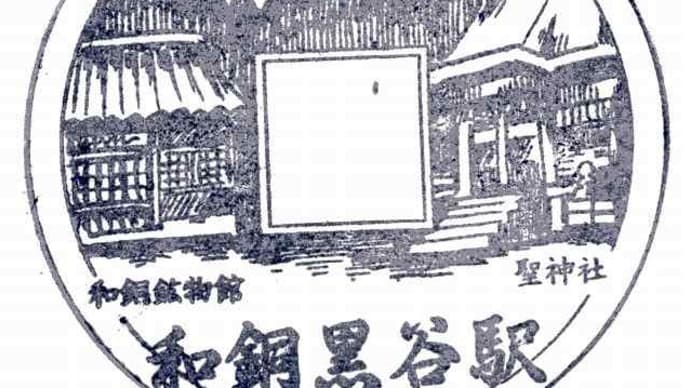 和銅鉱物館
聖神社
和銅黒谷駅